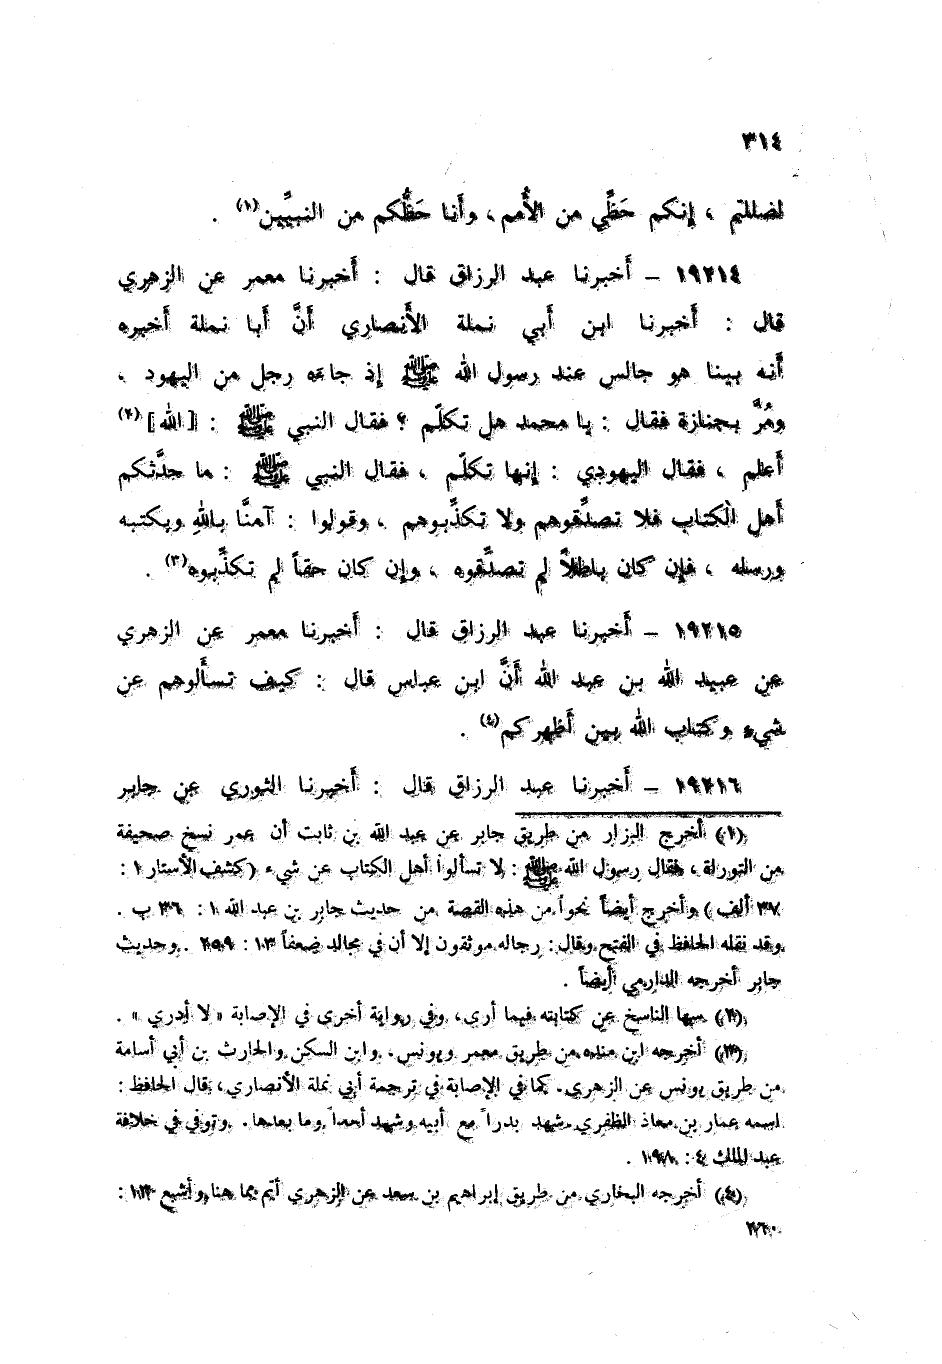 ٣١٤
لضللتم ، إنكم حَظِّي من الأُمم ، وأَنا حَظُّكم من النبيِّين(١) .
١٩٢١٤ – أَخبرنا عبد الرزاق قال : أَخبرنا معمر عن الزهري
قال : أَخبرنا ابن أَبي نملة الأَنصاري أَنَّ أَبا نملة أَخبره
أَنه بينا هو جالس عند رسول الله ﷺ إذ جاءه رجل من اليهود ،
ومُرَّ بجنازة فقال : يا محمد هل تكلّم ؟ فقال النبي ﷺ : [ الله ](٢)
أَعلم ، فقال اليهودي : إنها تكلّم ، فقال النبي ﷺ : ما حدَّثكم
أَهل الكتاب فلا تصدِّقوهم ولا تكذِّبوهم ، وقولوا : آمنَّا باللهِ وبكتبه
ورسله ، فإن كان باطلاً لم تصدِّقوه ، وإن كان حقاً لم تكذِّبوه(٣) .
١٩٢١٥ – أَخبرنا عبد الرزاق قال : أَخبرنا معمر عن الزهري
عن عبيد الله بن عبد الله أَنَّ ابن عباس قال : كيف تسأَلوهم عن
شيءٍ وكتاب الله بين أَظهركم(٤) .
١٩٢١٦ – أَخبرنا عبد الرزاق قال : أَخبرنا الثوري عن جابر
(١) أخرج البزار من طريق جابر عن عبد الله بن ثابت أن عمر نسخ صحيفة
من التوراة ، فقال رسول الله ﷺ : لا تسألوا أهل الكتاب عن شيء (كشف الأستار ١ :
٣٧ ألف) وأخرج أيضاً نحواً من هذه القصة من حديث جابر بن عبد الله ١ : ٣٦ ب .
وقد نقله الحافظ في الفتح وقال : رجاله موثقون إلا أن في مجالد ضعفاً ١٣ : ٢٥٩ . وحديث
جابر أخرجه الدارمي أيضاً .
(٢) سها الناسخ عن كتابته فيما أرى ، وفي رواية أخرى في الإصابة « لا أدري » .
(٣) أخرجه ابن منده من طريق معمر ويونس ، وابن السكن والحارث بن أبي أسامة
من طريق يونس عن الزهري . كما في الإصابة في ترجمة أبي نملة الأنصاري ، قال الحافظ :
اسمه عمار بن معاذ الظفري شهد بدراً مع أبيه وشهد أحداً وما بعدها . وتوفي في خلافة
عبد الملك ٤ : ١٩٨ .
(٤) أخرجه البخاري من طريق إبراهيم بن سعد عن الزهري أتم مما هنا وأشبع ١٣ :
٢٦٠